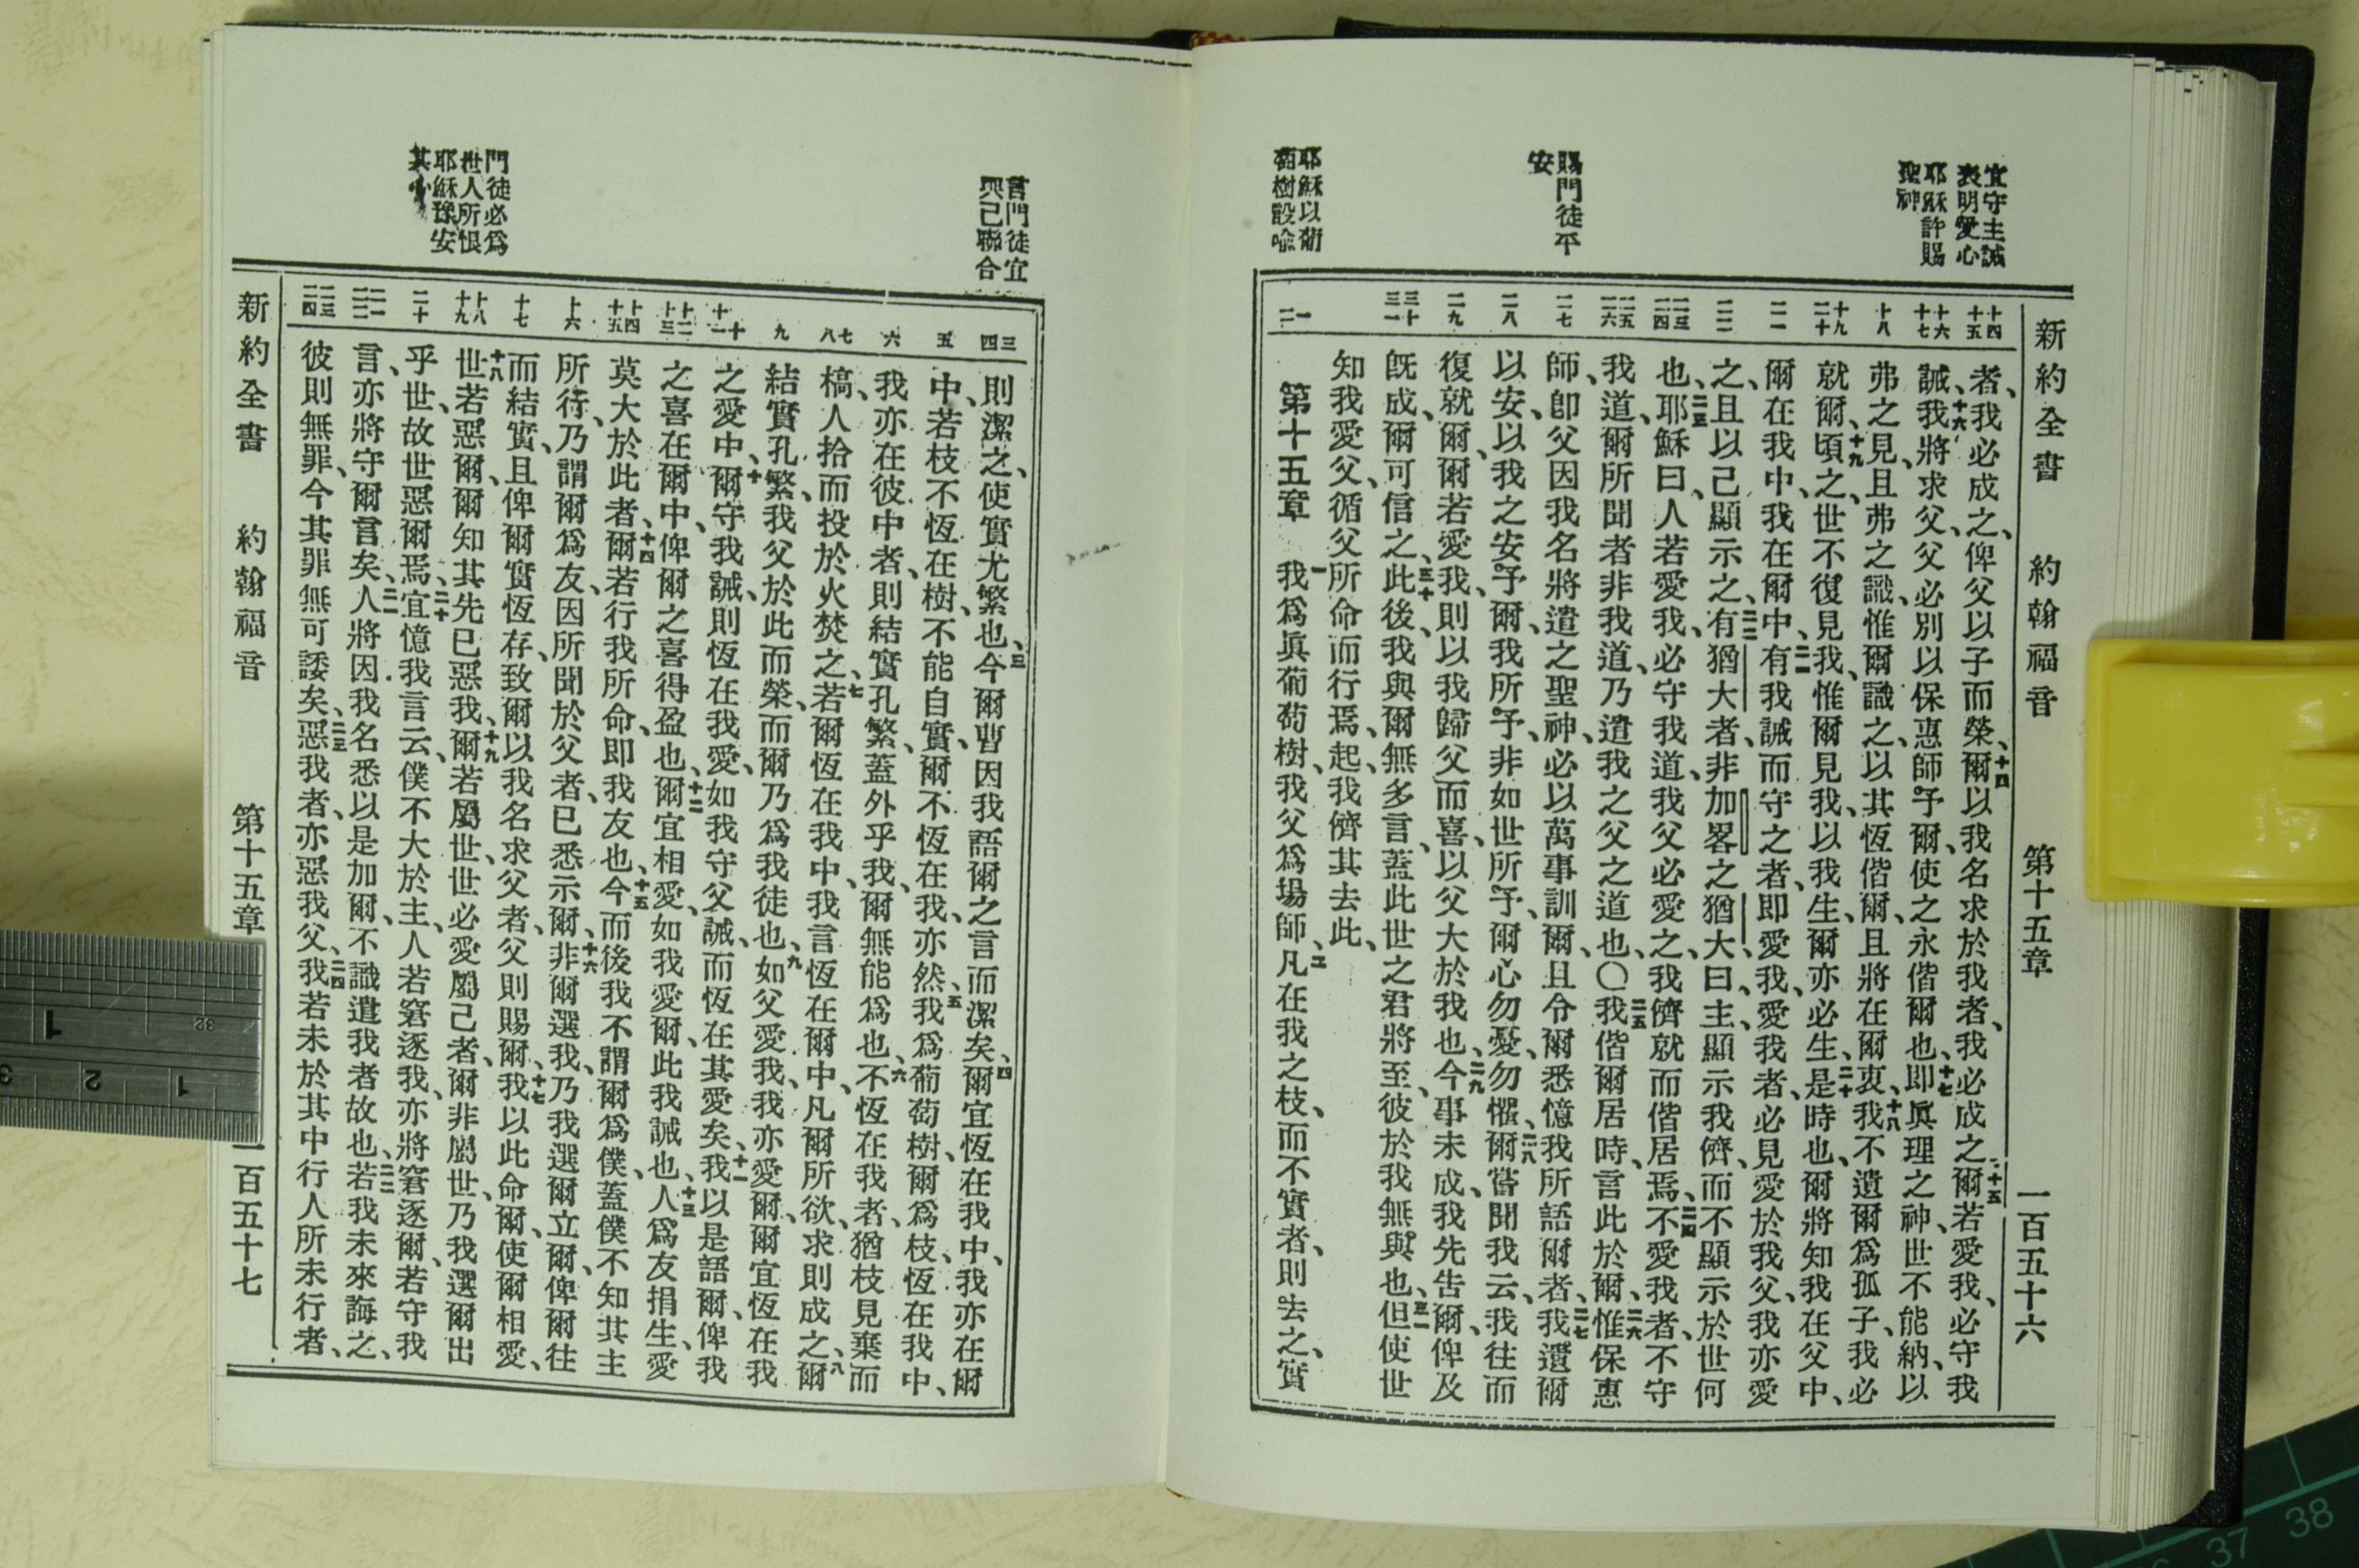 新約全書 約翰福音 第十五章 一百五十六
宜守主誡
表明愛心
耶穌許賜
聖神
賜門徒平
安
耶穌以葡
萄樹設喻
十四
十五
十六
十七
十八
十九
二十
二一
二二
二三
二四
二五
二六
二七
二八
二九
三十
三一
一
二
者、我必成之、俾父以子而榮、十四爾以我名求於我者、我必成之、十五爾若愛我、必守我
誡、十六我將求父、父必別以保惠師予爾、使之永偕爾也、十七即眞理之神、世不能納、以
弗之見、且弗之識、惟爾識之、以其恆偕爾、且將在爾衷、十八我不遺爾爲孤子、我必
就爾、十九頃之、世不復見我、惟爾見我、以我生、爾亦必生、二十是時也、爾將知我在父中、
爾在我中、我在爾中、二一有我誡而守之者、即愛我、愛我者、必見愛於我父、我亦愛
之、且以己顯示之、二二有猶大者、非加畧之猶大曰、主、顯示我儕、而不顯示於世何
也、二三耶穌曰、人若愛我、必守我道、我父必愛之、我儕就而偕居焉、二四不愛我者、不守
我道、爾所聞者非我道、乃遣我之父之道也、〇二五我偕爾居時、言此於爾、二六惟保惠
師、卽父因我名將遣之聖神、必以萬事訓爾、且令爾悉憶我所語爾者、二七我遺爾
以安、以我之安予爾、我所予、非如世所予、爾心勿憂、勿懼、二八爾嘗聞我云、我往而
復就爾、爾若愛我、則以我歸父而喜、以父大於我也、二九今事未成、我先告爾、俾及
旣成、爾可信之、三十此後、我與爾無多言、蓋此世之君將至、彼於我無與也、三一但使世
知我愛父、循父所命而行焉、起、我儕其去此、
第十五章 一我爲眞葡萄樹、我父爲場師、二凡在我之枝、而不實者、則去之、實
言門徒宜
與己聯合
門徒必爲
世人所恨
耶穌豫安
三
四
五
六
七
八
九
十
十一
十二
十三
十四
十五
十六
十七
十八
十九
二十
二一
二二
二三
二四
則潔之、使實尤繁也、三今爾曹因我語爾之言而潔矣、四爾宜恆在我中、我亦在爾
中、若枝不恆在樹、不能自實、爾不恆在我、亦然、五我爲葡萄樹、爾爲枝、恆在我中、
我亦在彼中者、則結實孔繁、蓋外乎我、爾無能爲也、六不恆在我者、猶枝見棄而
槁、人拾而投於火焚之、七若爾恆在我中、我言恆在爾中、凡爾所欲、求則成之、八爾
結實孔繁、我父於此而榮、而爾乃爲我徒也、九如父愛我、我亦愛爾、爾宜恆在我
之愛中、十爾守我誡、則恆在我愛、如我守父誡、而恆在其愛矣、十一我以是語爾、俾我
之喜在爾中、俾爾之喜得盈也、十二爾宜相愛、如我愛爾、此我誡也、十三人爲友捐生、愛
莫大於此者、十四爾若行我所命、即我友也、十五今而後我不謂爾爲僕、蓋僕不知其主
所行、乃謂爾爲友、因所聞於父者、已悉示爾、十六非爾選我、乃我選爾立爾、俾爾往
而結實、且俾爾實恆存、致爾以我名求父者、父則賜爾、十七我以此命爾、使爾相愛、
十八世若惡爾、爾知其先已惡我、十九爾若屬世、世必愛屬己者、爾非屬世、乃我選爾出
乎世、故世惡爾焉、二十宜憶我言云、僕不大於主、人若窘逐我、亦將窘逐爾、若守我
言、亦將守爾言矣、二一人將因我名悉以是加爾、不識遣我者故也、二二若我未來誨之、
彼則無罪、今其罪無可諉矣、二三惡我者、亦惡我父、二四我若未於其中行人所未行者、
新約全書 約翰福音 第十五章 一百五十七
1
32
3 2 1
37 38